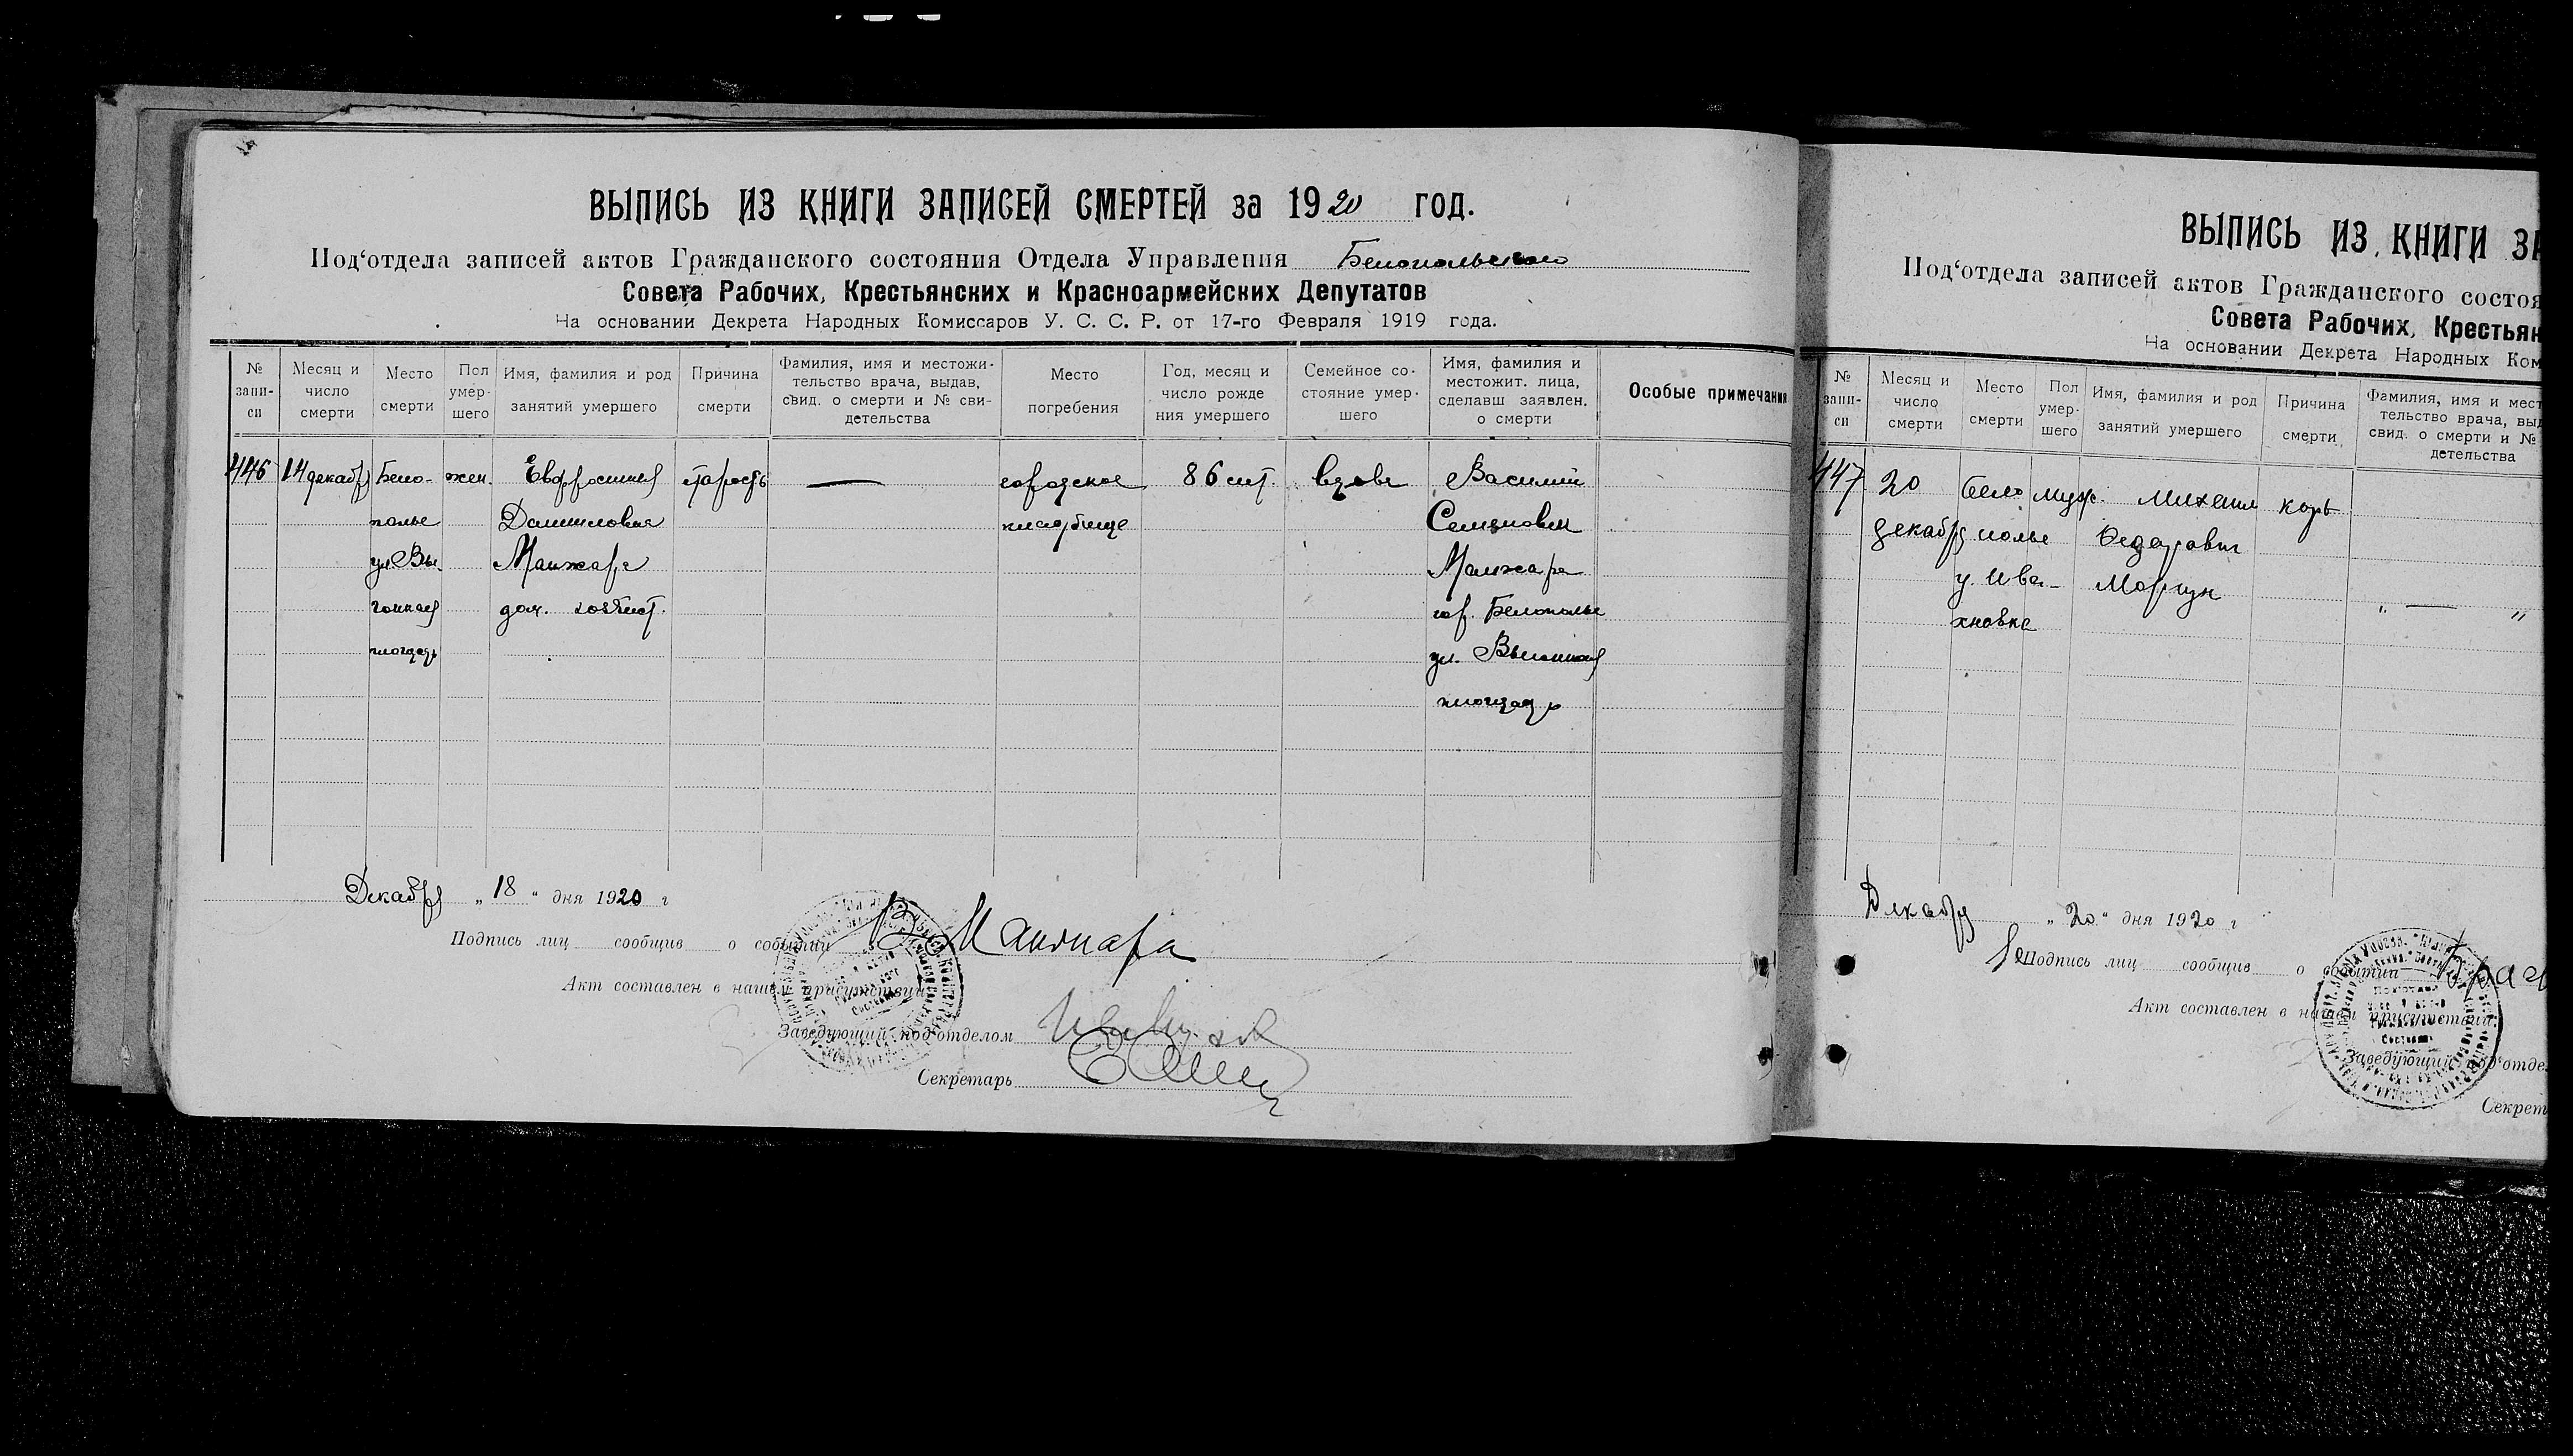 ВЫПИСЬ ИЗ КНИГИ ЗАПИСЕЙ СМЕРТЕЙ за 1920 год.
Под‘отдела записей актов Гражданского состояния Отдела Управления Белопольского
Совета Рабочих, Крестьянских и Красноармейских Депутатов
На основании Декрета Народных Комиссаров У. С. С. Р. от 17-го Февраля 1919 года.
№ запи- си
Месяц и число смерти
Место смерти
Пол умер- шего
Имя, фамилия и род занятий умершего
Причина смерти
Фамилия, имя и местожи- тельство врача, выдав, свид. о смерти и № сви- детельства
Место погребения
Год, месяц и число рожде ния умершего
Семейное со- стояние умер- шего
Имя, фамилия и местожит. лица, сделавш заявлен. о смерти
Особые примечания
446 14 декабря Бело- жен. Евфросиния старость — городское 86 лет вдова Василий
полье Данииловна кладбище Семенович
ул. Вы- Манжара Манжара
гонная дом. хозяист. гор. Белополье
площадь ул. Выгонная
площадь
Декабря „ 18 “ дня 1920 г
Подпись лиц сообщив о событии В Манжара
Акт составлен в нашем присутствии
Заведующий под‘отделом
Секретарь
ВЫПИСЬ ИЗ КНИГИ ЗА
Под‘отдела записей актов Гражданского состоя
Совета Рабочих, Крестьян
На основании Декрета Народных Ком
№ запи- си
Месяц и число смерти
Место смерти
Пол умер- шего
Имя, фамилия и род занятий умершего
Причина смерти
Фамилия, имя и мест тельство врача, выд свид. о смерти и № детельства
447 20 Бело муж. Михаил корь
декабря полье Федорович
у. Ива- Моргун
хновка „ — „
Декабря „ 20 “ дня 1920 г
Подпись лиц сообщив о событии
Акт составлен в нашем присутствии
Заведующий под‘отде
Секрет